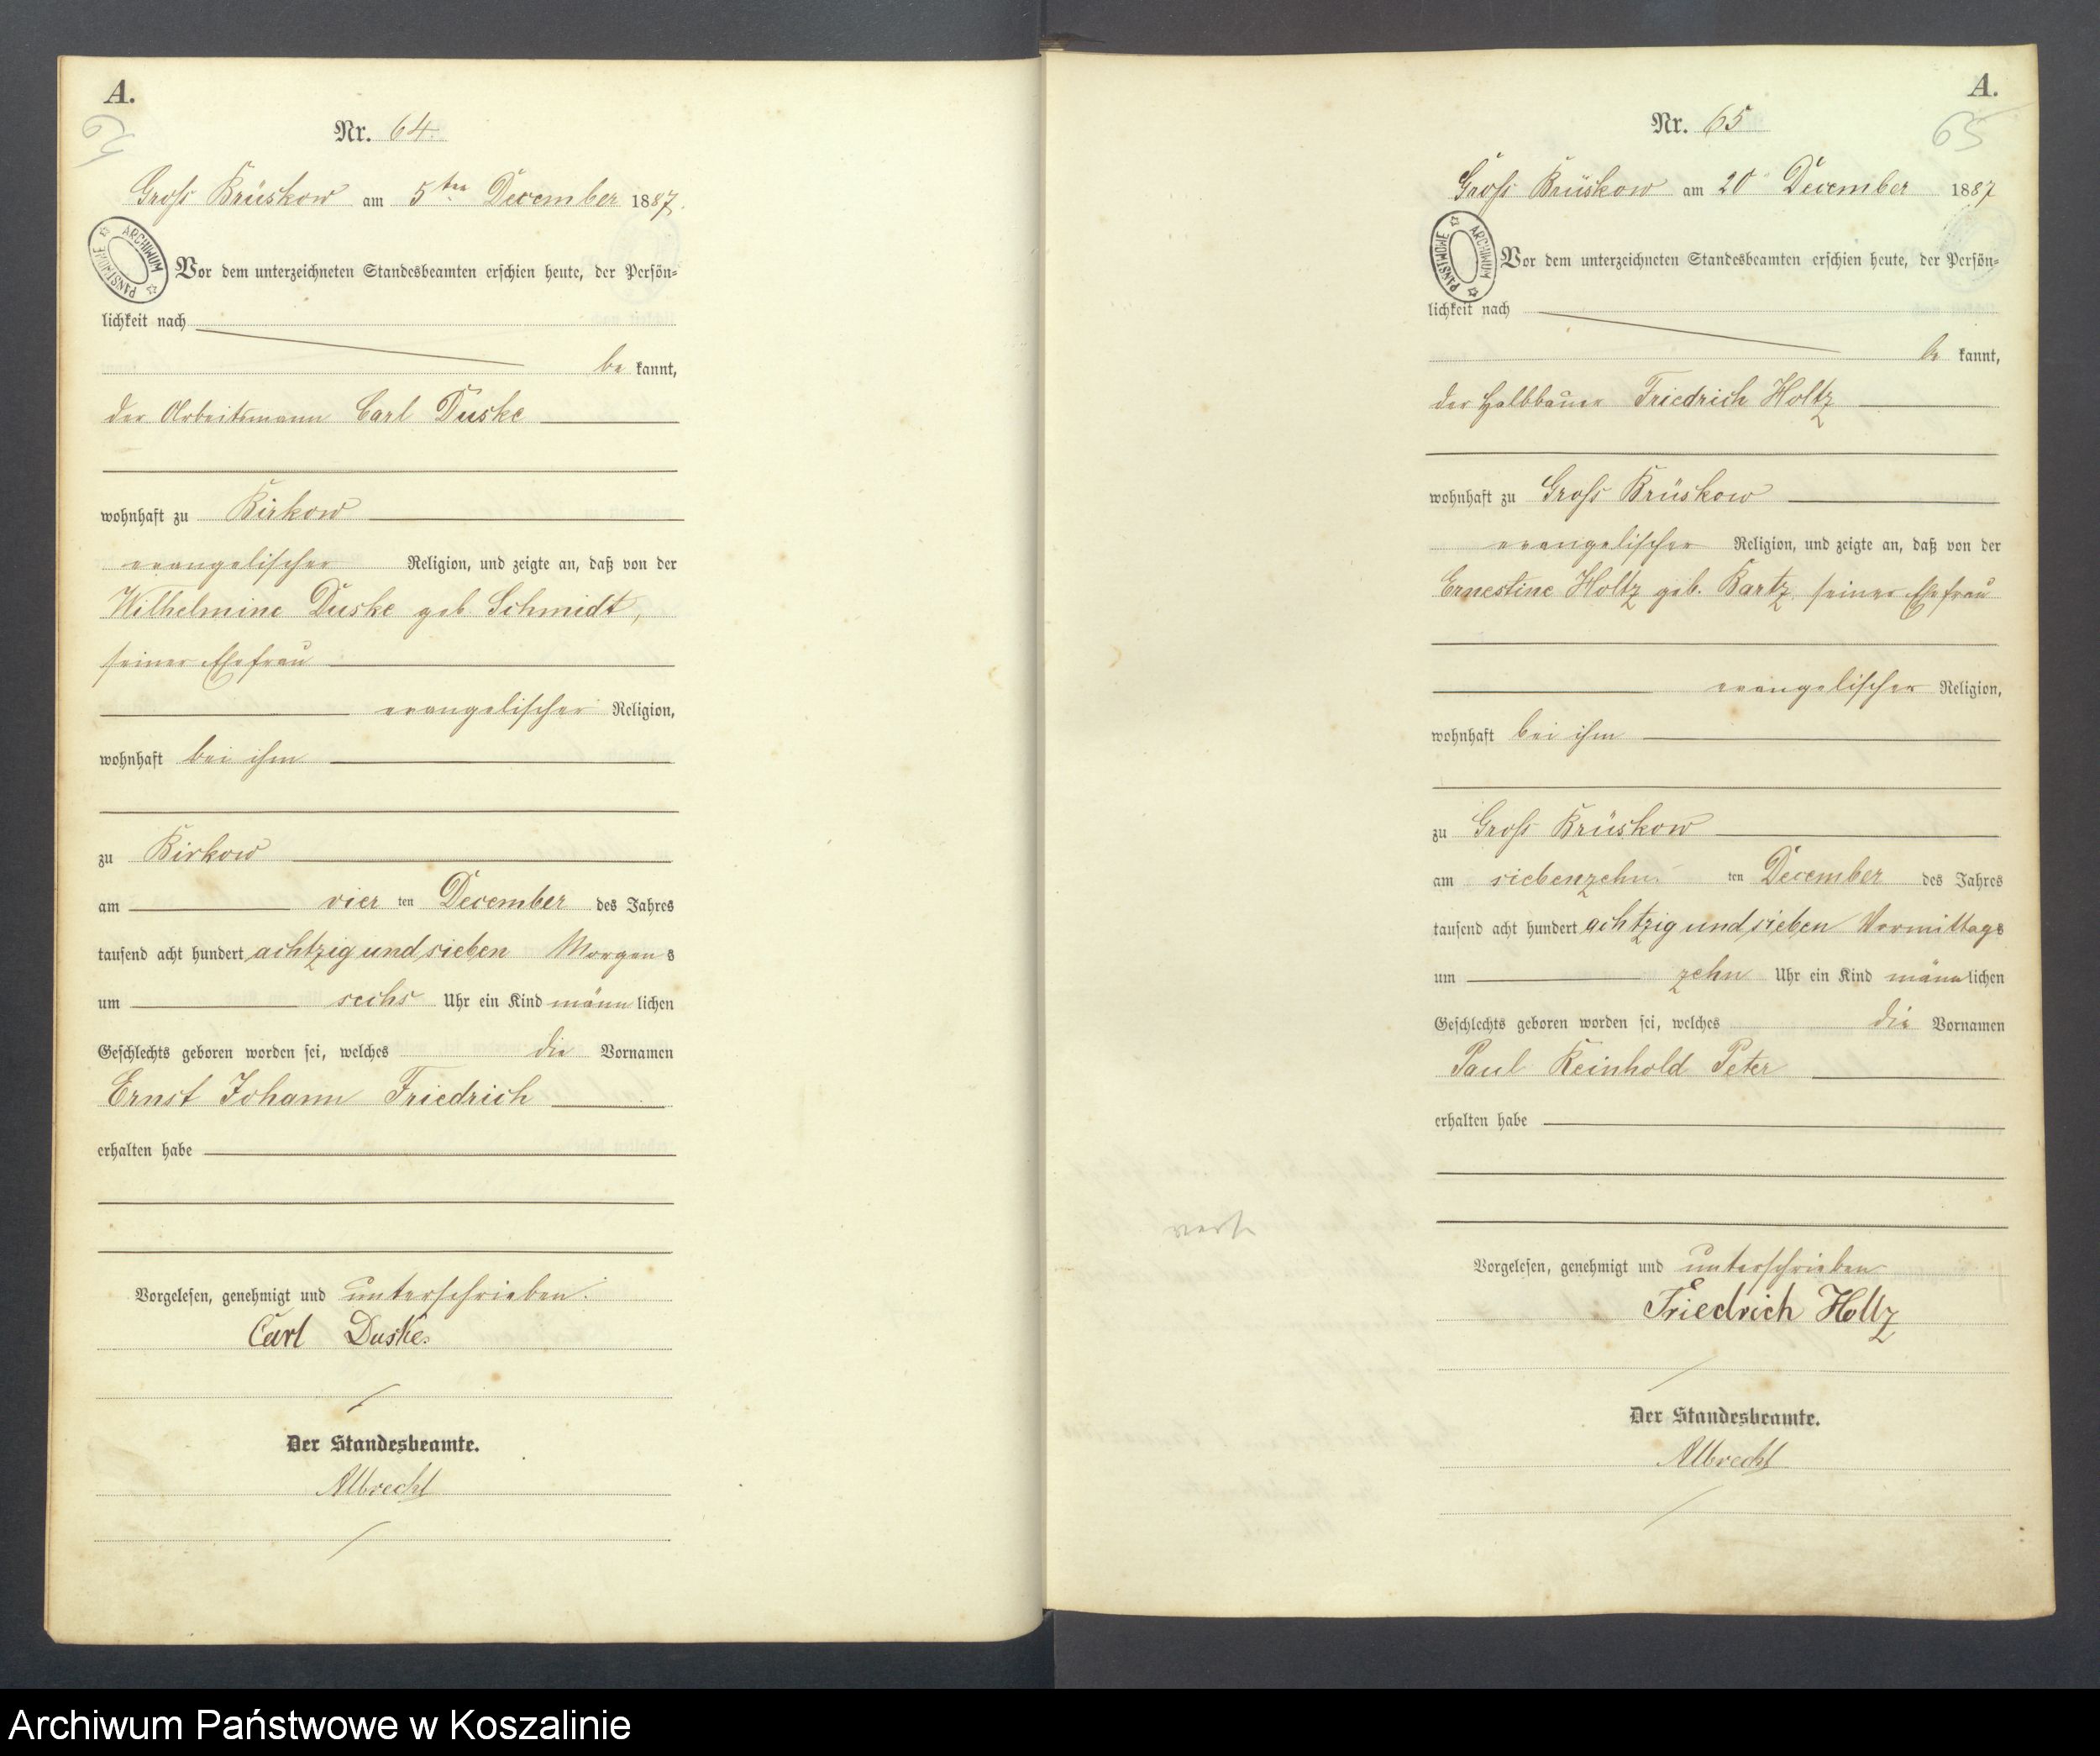 A.
64
Nr. 64.
Groß Brüskow am 5ten December 1887.
ARCHIWUM PAŃSTWOWE
Vor dem unterzeichneten Standesbeamten erschien heute, der Persön-
lichkeit nach
be kannt,
der Arbeitsmann Carl Duske
wohnhaft zu Birkow
evangelischer Religion, und zeigte an, daß von der
Wilhelmine Duske geb. Schmidt,
seiner Ehefrau
evangelischer Religion,
wohnhaft bei ihm
zu Birkow
am vier ten December des Jahres
tausend acht hundert achtzig und sieben Morgens
um sechs Uhr ein Kind männlichen
Geschlechts geboren worden sei, welches die Vornamen
Ernst Johann Friedrich
erhalten habe
Vorgelesen, genehmigt und unterschrieben.
Carl Duske.
Der Standesbeamte.
Albrecht
A.
65
Nr. 65
Groß Brüskow am 20 December 1887
ARCHIWUM PAŃSTWOWE
Vor dem unterzeichneten Standesbeamten erschien heute, der Persön-
lichkeit nach
be kannt,
der Halbbauer Friedrich Holtz
wohnhaft zu Groß Brüskow
evangelischer Religion, und zeigte an, daß von der
Ernestine Holtz geb. Bartz, seiner Ehefrau
evangelischer Religion,
wohnhaft bei ihm
zu Groß Brüskow
am siebenzehn ten December des Jahres
tausend acht hundert achtzig und sieben Vormittags
um zehn Uhr ein Kind männlichen
Geschlechts geboren worden sei, welches die Vornamen
Paul Reinhold Peter
erhalten habe
Vorgelesen, genehmigt und unterschrieben
Friedrich Holtz
Der Standesbeamte.
Albrecht
Archiwum Państwowe w Koszalinie